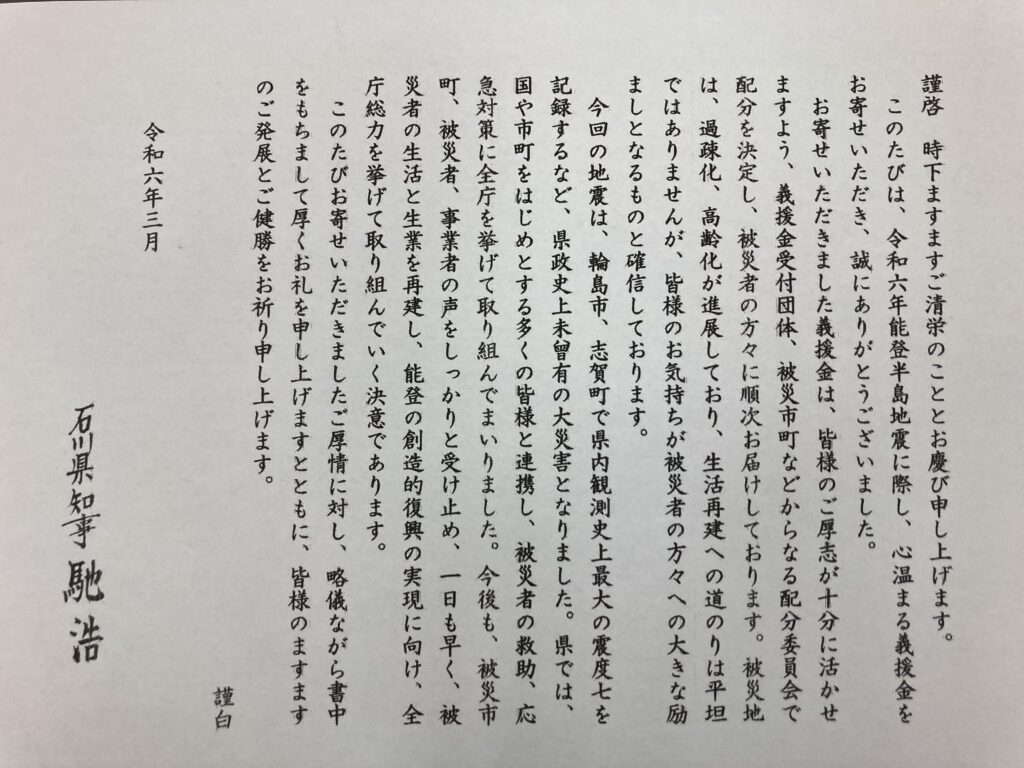 謹啓　時下ますますご清栄のこととお慶び申し上げます。
このたびは、令和六年能登半島地震に際し、心温まる義援金を
お寄せいただき、誠にありがとうございました。
お寄せいただきました義援金は、皆様のご厚志が十分に活かせ
ますよう、義援金受付団体、被災市町などからなる配分委員会で
配分を決定し、被災者の方々に順次お届けしております。被災地
は、過疎化、高齢化が進展しており、生活再建への道のりは平坦
ではありませんが、皆様のお気持ちが被災者の方々への大きな励
ましとなるものと確信しております。
今回の地震は、輪島市、志賀町で県内観測史上最大の震度七を
記録するなど、県政史上未曾有の大災害となりました。県では、
国や市町をはじめとする多くの皆様と連携し、被災者の救助、応
急対策に全庁を挙げて取り組んでまいりました。今後も、被災市
町、被災者、事業者の声をしっかりと受け止め、一日も早く、被
災者の生活と生業を再建し、能登の創造的復興の実現に向け、全
庁総力を挙げて取り組んでいく決意であります。
このたびお寄せいただきましたご厚情に対し、略儀ながら書中
をもちまして厚くお礼を申し上げますとともに、皆様のますます
のご発展とご健勝をお祈り申し上げます。
謹白
令和六年三月
石川県知事 馳浩